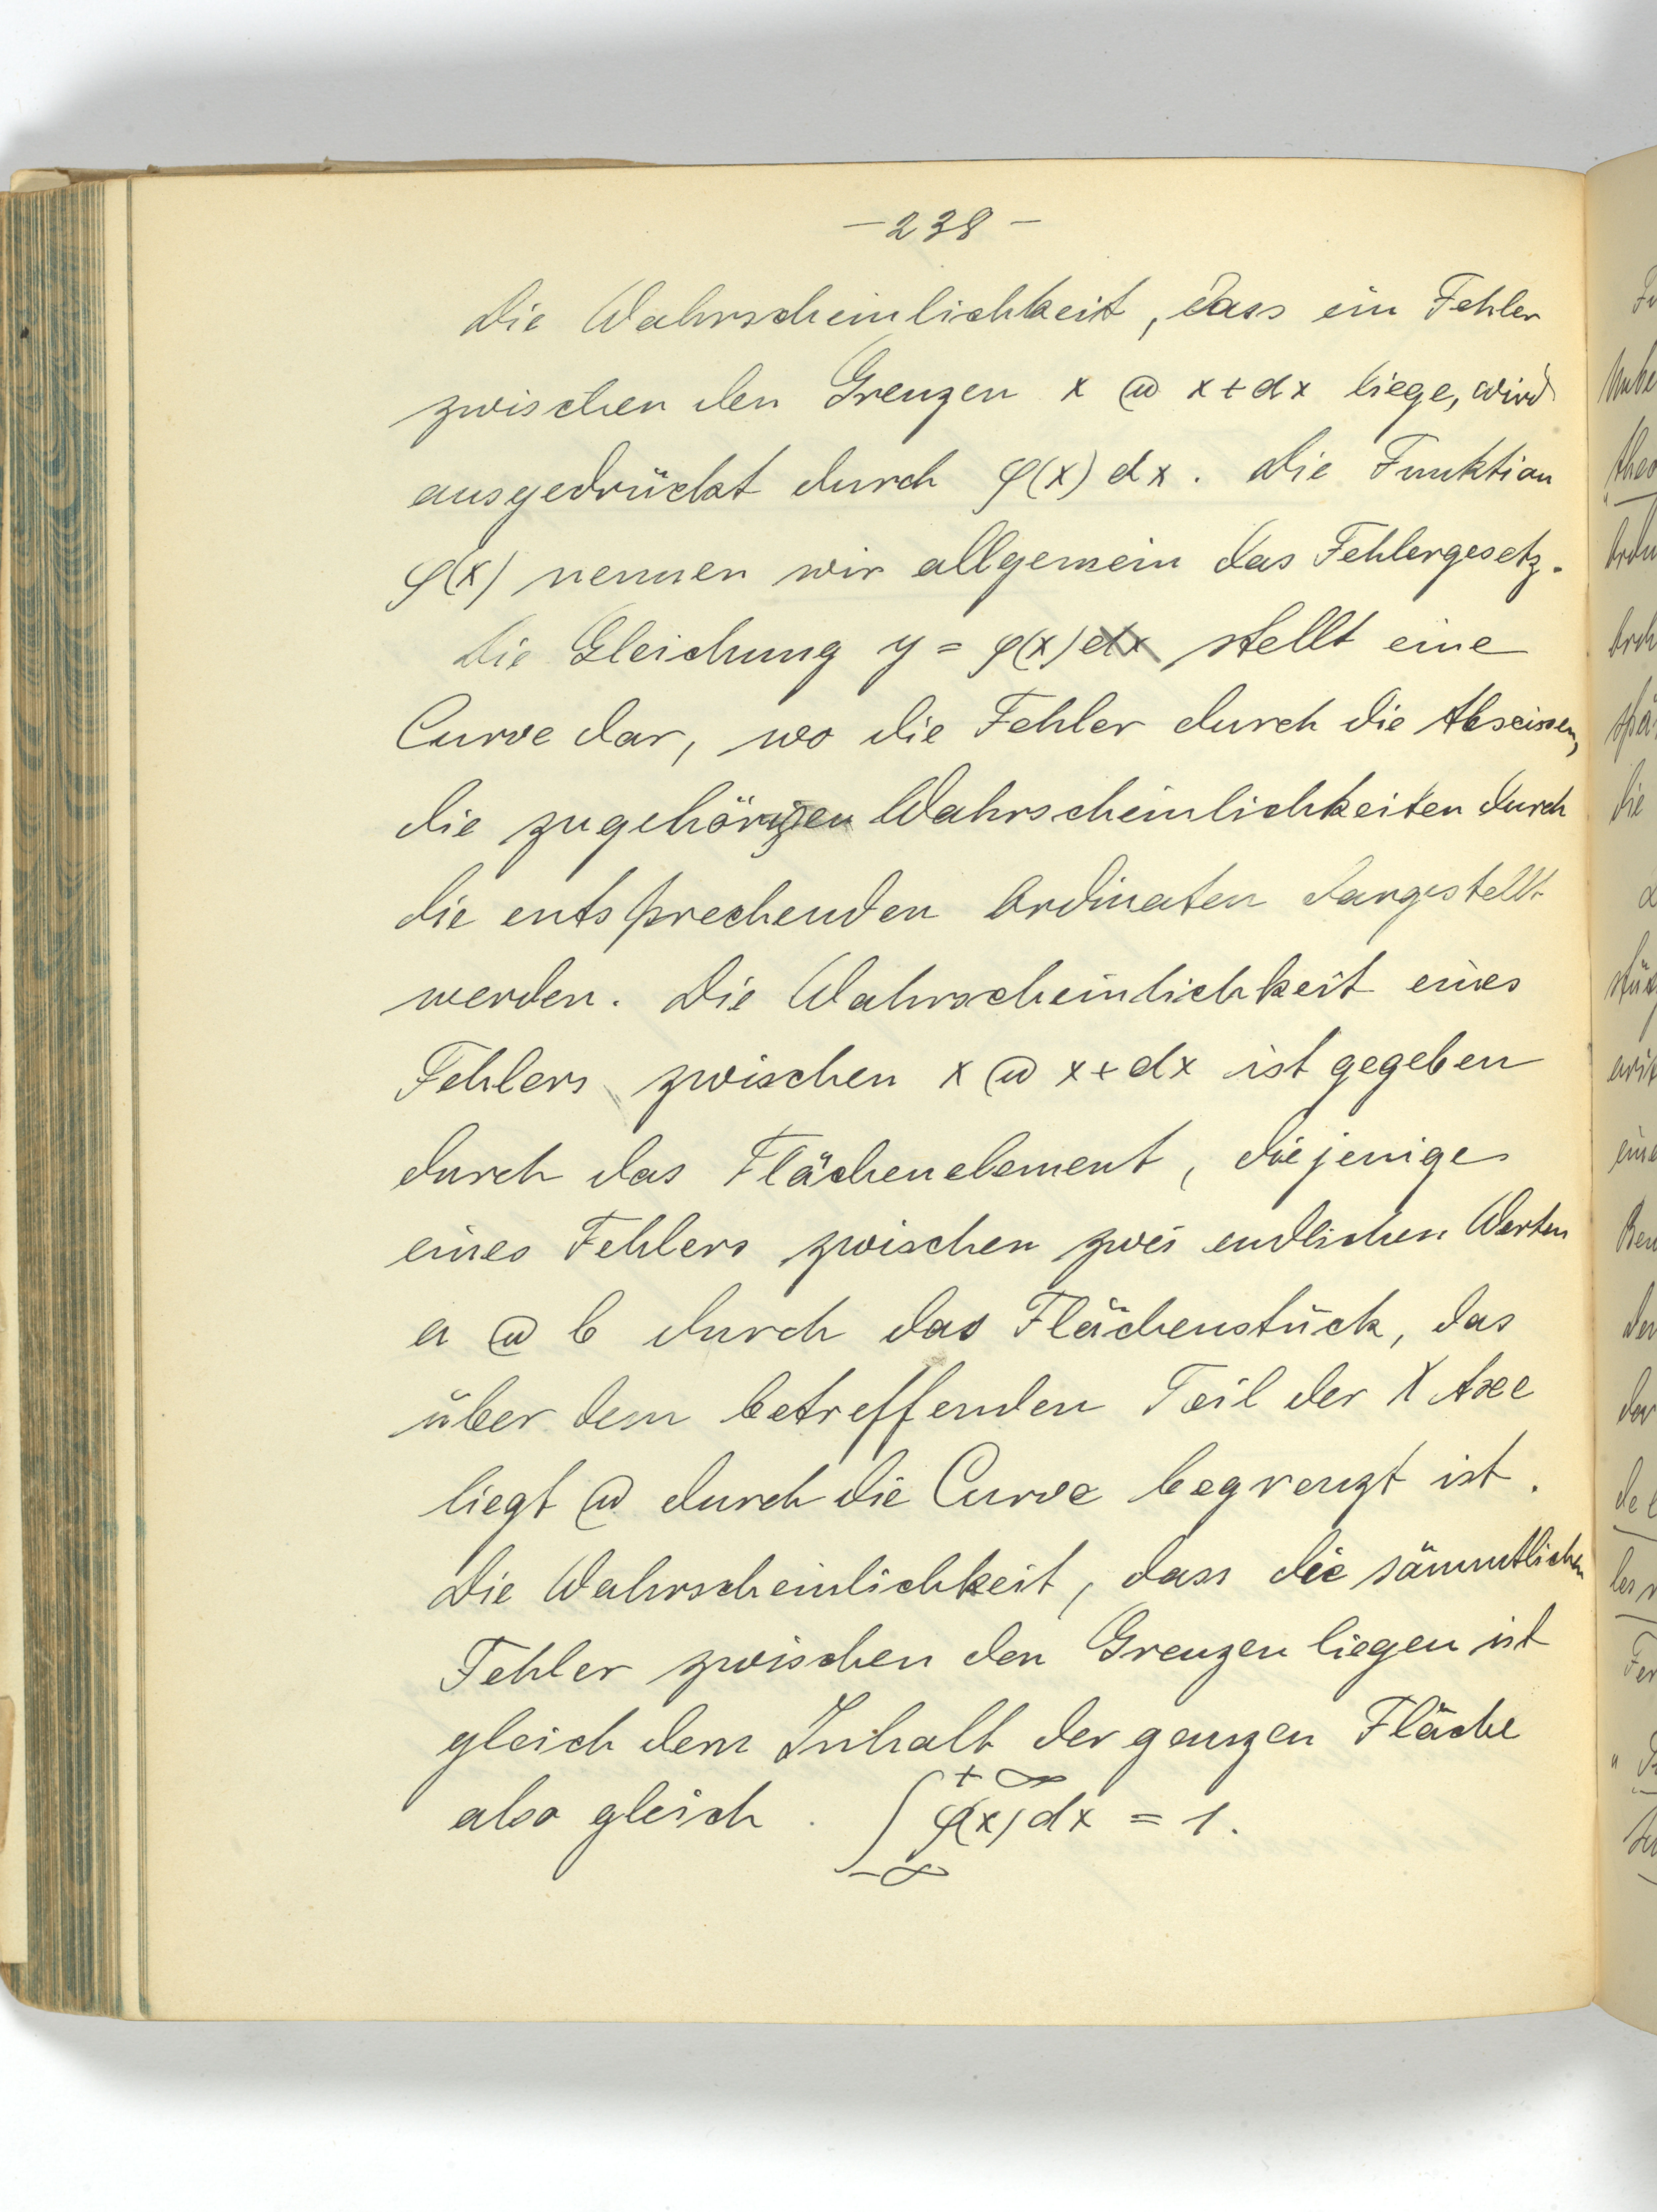 -238-
Die Wahrscheinlichkeit, dass ein Fehler
zwischen den Grenzen x u x+dx liege, wird
ausgedrückt durch φ(x) dx. Die Funktion
φ(x) nennen wir allgemein das Fehlergesetz.
Die Gleichung y = φ(x) dx stellt eine
Curve dar, wo die Fehler durch die Abscissen,
die zugehörigen Wahrscheinlichkeiten durch
die entsprechenden Ordinaten dargestellt
werden. Die Wahrscheinlichkeit eines
Fehlers zwischen x u x+dx ist gegeben
durch das Flächenelement, diejenige
eines Fehlers zwischen zwei endlichen Werten
a u b durch das Flächenstück, das
über dem betreffenden Teil der X Axe
liegt u durch die Curve begrenzt ist.
Die Wahrscheinlichkeit, dass die sämmtlichen
Fehler zwischen den Grenzen liegen ist
gleich dem Inhalt der ganzen Fläche
also gleich. ∫_{-∞}^{+∞} φ(x) dx = 1.